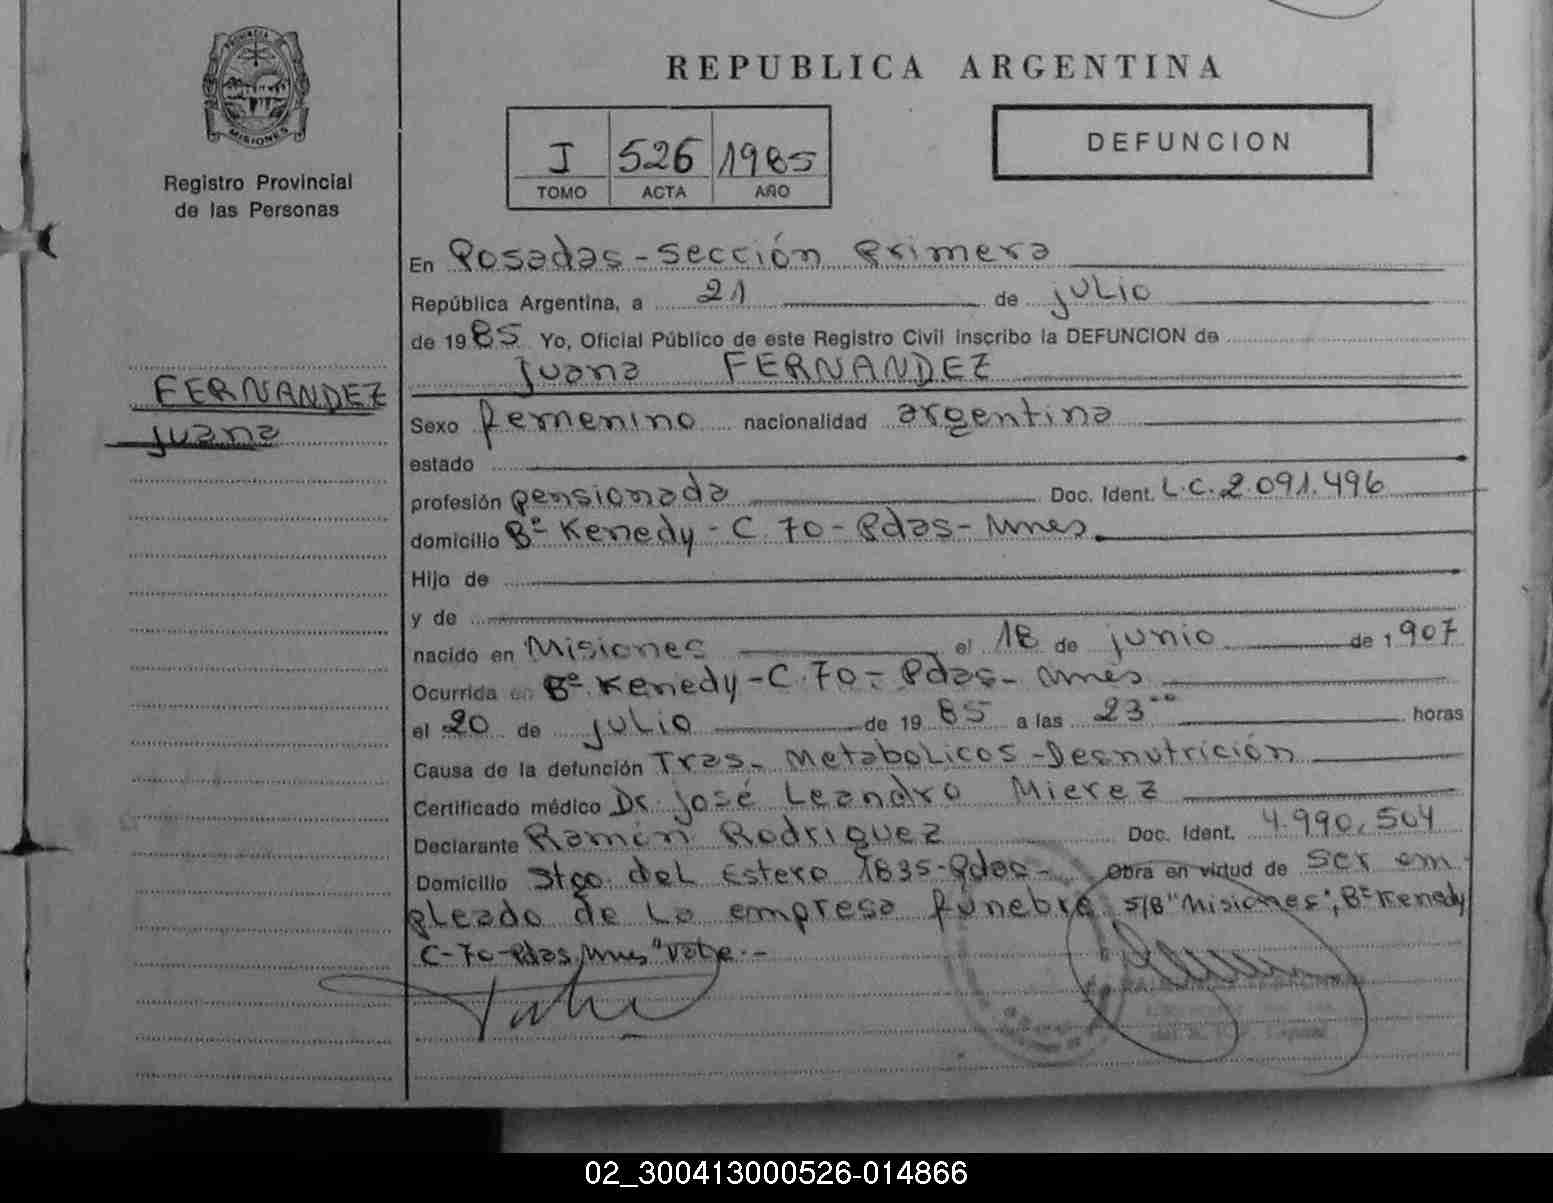 PROVINCIA
MISIONES
Registro Provincial
de las Personas
FERNANDEZ
Juana
REPUBLICA ARGENTINA
I 526 1985
TOMO ACTA AÑO
DEFUNCION
En Posadas - Sección Primera
República Argentina, a 21 de julio
de 1985 Yo, Oficial Público de este Registro Civil inscribo la DEFUNCION de
Juana FERNANDEZ
Sexo femenino nacionalidad argentina
estado
profesión pensionada Doc. Ident. L.C. 2.091.496
domicilio Bº Kenedy - C. 70 - Pdas - Mnes
Hijo de
y de
nacido en Misiones el 18 de junio de 1907
Ocurrida en Bº Kenedy - C. 70 - Pdas - Mnes
el 20 de julio de 1985 a las 23 horas
Causa de la defunción Tras. Metabolicos - Desnutrición
Certificado médico Dr. José Leandro Mierez
Declarante Ramón Rodriguez Doc. Ident. 4.990.504
Domicilio Stgo. del Estero 1835 - Pdas - Obra en virtud de ser em
pleado de la empresa funebre S/B "Misiones", Bº Kenedy
C-70-Pdas, Mnes" Vale.-
02_300413000526-014866